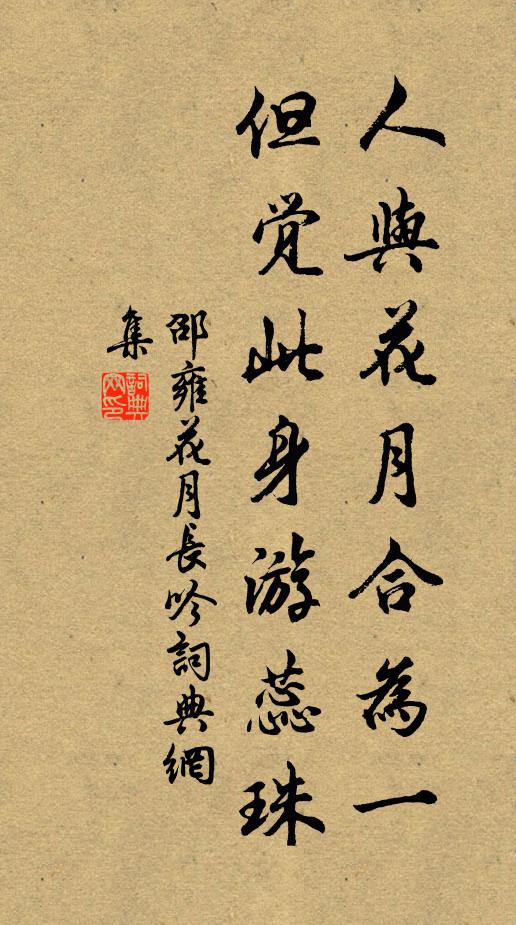 人與花月合為一
但覺此身游蕊珠
邵雍花月長吟詞典網
集
詞典
網印